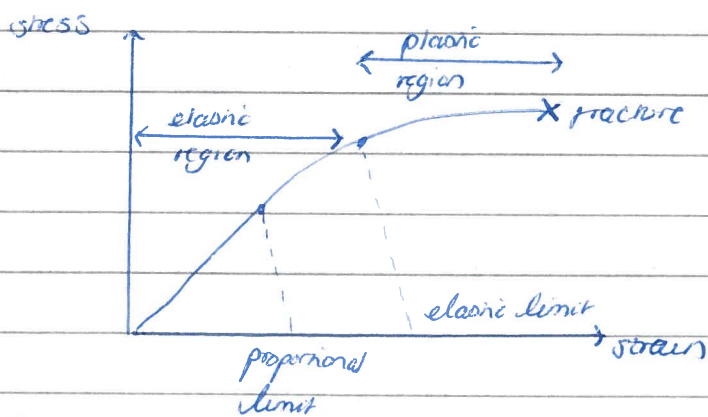 stress
plastic
region
elastic
region
fracture
elastic limit
strain
proportional
limit